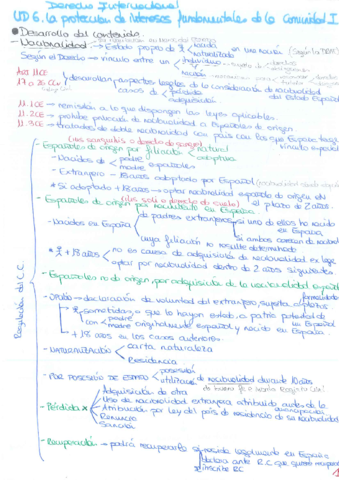 Derecho Internacional
UD 6. La protección de intereses fundamentales de la Comunidad I.
Desarrollo del contenido
Nacionalidad → Estado propio de < nacida naturalizada en una nación (según la RAE)
Según el Derecho → vínculo entre un < individuo
nación
Art 11CE
17 a 26 CC y desarrollan aspectos legales de la consideración de nacionalidad
causas de < pérdida adquisición del Estado Español
11.1CE → remisión a lo que dispongan las leyes aplicables.
11.2CE → prohíbe privación de nacionalidad a españoles de origen
11.3CE → tratados de doble nacionalidad con países con los que España tenga vínculo especial
(ius sanguinis o derecho de sangre)
Regulación del C.C.
- Españoles de origen por filiación < natural adoptiva
- Nacidos de < padre madre españoles
- Extranjero - 18 años adoptado por Español
* Si adoptado +18 años → optar nacionalidad español de origen en el plazo de 2 años.
- Españoles de origen por nacimiento en España. (ius soli o derecho de suelo)
- Nacidos en España < de padres extranjeros < si uno de ellos ha nacido en España
si ambos carecen de nacionalidad
cuya filiación no resulte determinada
+18 años < no es causa de adquisición de nacionalidad española
optar por nacionalidad dentro de 2 años siguientes.
- Españoles no de origen, por adquisición de la nacionalidad española
- OPCIÓN → declaración de voluntad del extranjero,
sometidas o que lo hayan estado a patria potestad de un Español
con < padre madre originalmente español y nacido en España.
+18 años en los casos anteriores.
- NATURALIZACIÓN < carta naturaleza
Residencia
- POR POSESIÓN DE ESTADO < posesión utilización de nacionalidad durante 10 años
de buena fe
- Pérdida < Adquisición de otra
Uso de nacionalidad extranjera atribuida antes de la emancipación
Atribución por Ley del país de residencia de su nacionalidad
Renuncia
Sanción
- Recuperación → podrá recuperarla < si reside legalmente en España
declara ante R.C que quiere recuperar
inscribe RC
1